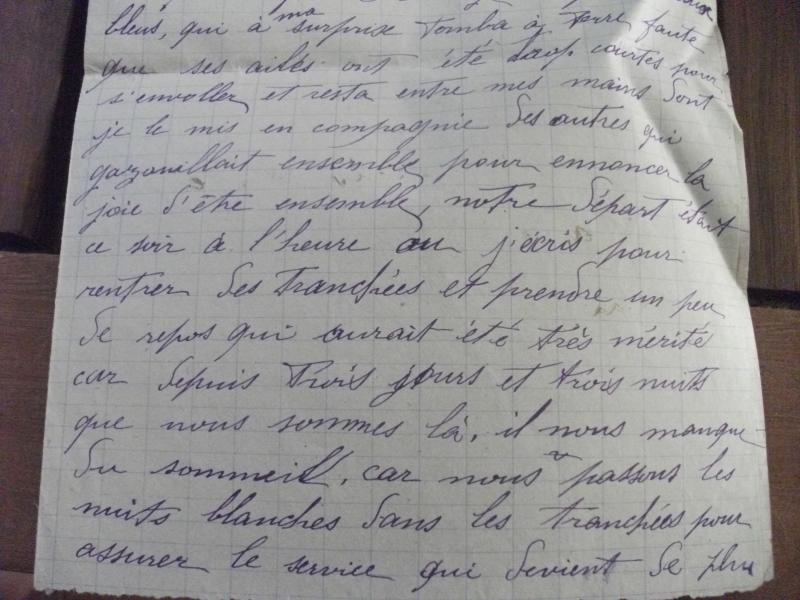 bleus, qui à ma surprise tomba à terre, faute
que ses ailes ont été trop courtes pour
s'envoller et resta entre mes mains Dont
je le mis en compagnie des autres qui
gazouillait ensemble, pour ennoncer la
joie d'être ensemble, notre départ était
ce soir à l'heure ou j'écris pour
rentrer des tranchées et prendre un peu
de repos qui aurait été très mérité
car depuis trois jours et trois nuits
que nous sommes là, il nous manque
du sommeil, car nous passons les
nuits blanches dans les tranchées pour
assurer le service qui devient de plus